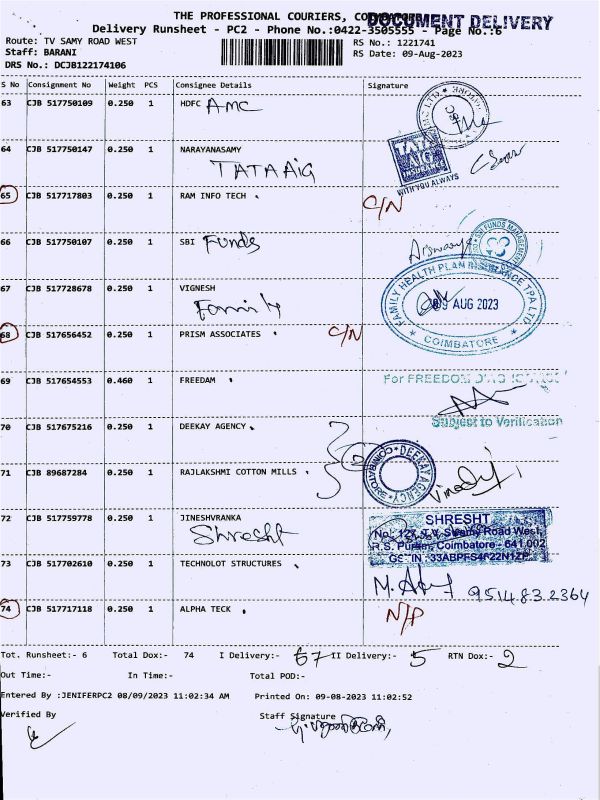 THE PROFESSIONAL COURIERS,
DOCUMENT DELIVERY
Delivery Runsheet - PC2 - Phone No.:0422-3505555 - Page No.:6
Route: TV SAMY ROAD WEST
RS No.: 1221741
Staff: BARANI
RS Date: 09-Aug-2023
DRS No.: DCJB122174106
S No Consignment No Weight PCS Consignee Details Signature
63 CJB 517750109 0.250 1 HDFC AMC
64 CJB 517750147 0.250 1 NARAYANASAMY
TATA AIG
TATA AIG INSURANCE
WITH YOU ALWAYS
65 CJB 517717803 0.250 1 RAM INFO TECH C/N
66 CJB 517750107 0.250 1 SBI Funds
SBI FUNDS MANAGEMENT
67 CJB 517728678 0.250 1 VIGNESH
Family
FAMILY HEALTH PLAN INSURANCE TPA LTD
09 AUG 2023
COIMBATORE
68 CJB 517656452 0.250 1 PRISM ASSOCIATES C/N
69 CJB 517654553 0.460 1 FREEDAM
For FREEDOM
Subject to Verification
70 CJB 517675216 0.250 1 DEEKAY AGENCY
DEEKAY AGENCY COIMBATORE
71 CJB 89687284 0.250 1 RAJLAKSHMI COTTON MILLS
72 CJB 517759778 0.250 1 JINESHVRANKA
Shresht
SHRESHT
No. 127, T.V. Swamy Road West,
R.S. Puram, Coimbatore - 641 002
73 CJB 517702610 0.250 1 TECHNOLOT STRUCTURES
9514832364
74 CJB 517717118 0.250 1 ALPHA TECK N/P
Tot. Runsheet:- 6 Total Dox:- 74 I Delivery:- 67 II Delivery:- 5 RTN Dox:- 2
Out Time:- In Time:- Total POD:-
Entered By :JENIFERPC2 08/09/2023 11:02:34 AM Printed On: 09-08-2023 11:02:52
Verified By Staff Signature